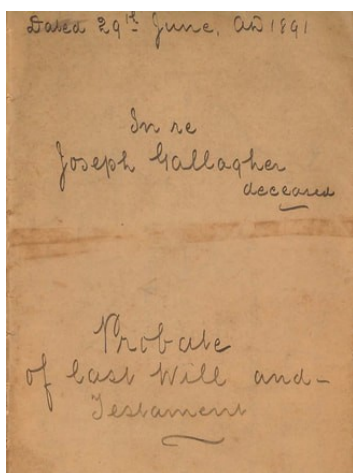 Dated 29th June, AD 1891
In re
Joseph Gallagher
deceased
Probate
of Last Will and -
Testament